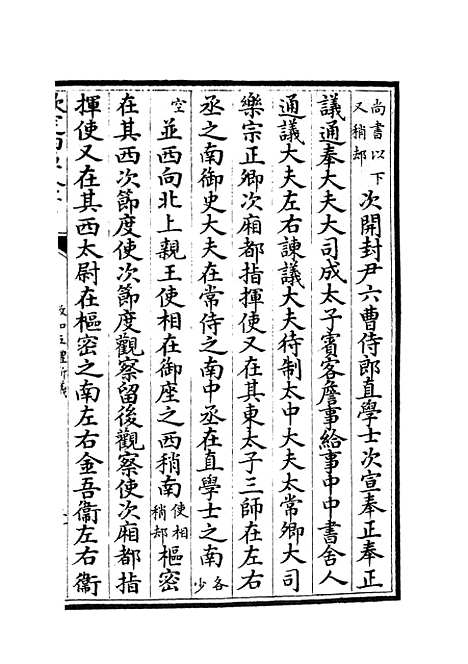 尚書以下又稍却次開封尹六曹侍郎直學士次宣奉正奉正
議通奉大夫大司成太子賓客詹事給事中中書舍人
通議大夫左右諫議大夫待制太中大夫太常卿大司
樂宗正卿次廂都指揮使又在其東太子三師在左右
丞之南御史大夫在常侍之南中丞在直學士之南各少
空並西向北上親王使相在御座之西稍南使相稍却樞密
在其西次節度使次節度觀察留後觀察使次廂都指
揮使又在其西太尉在樞密之南左右金吾衞左右衞
政和五禮新儀